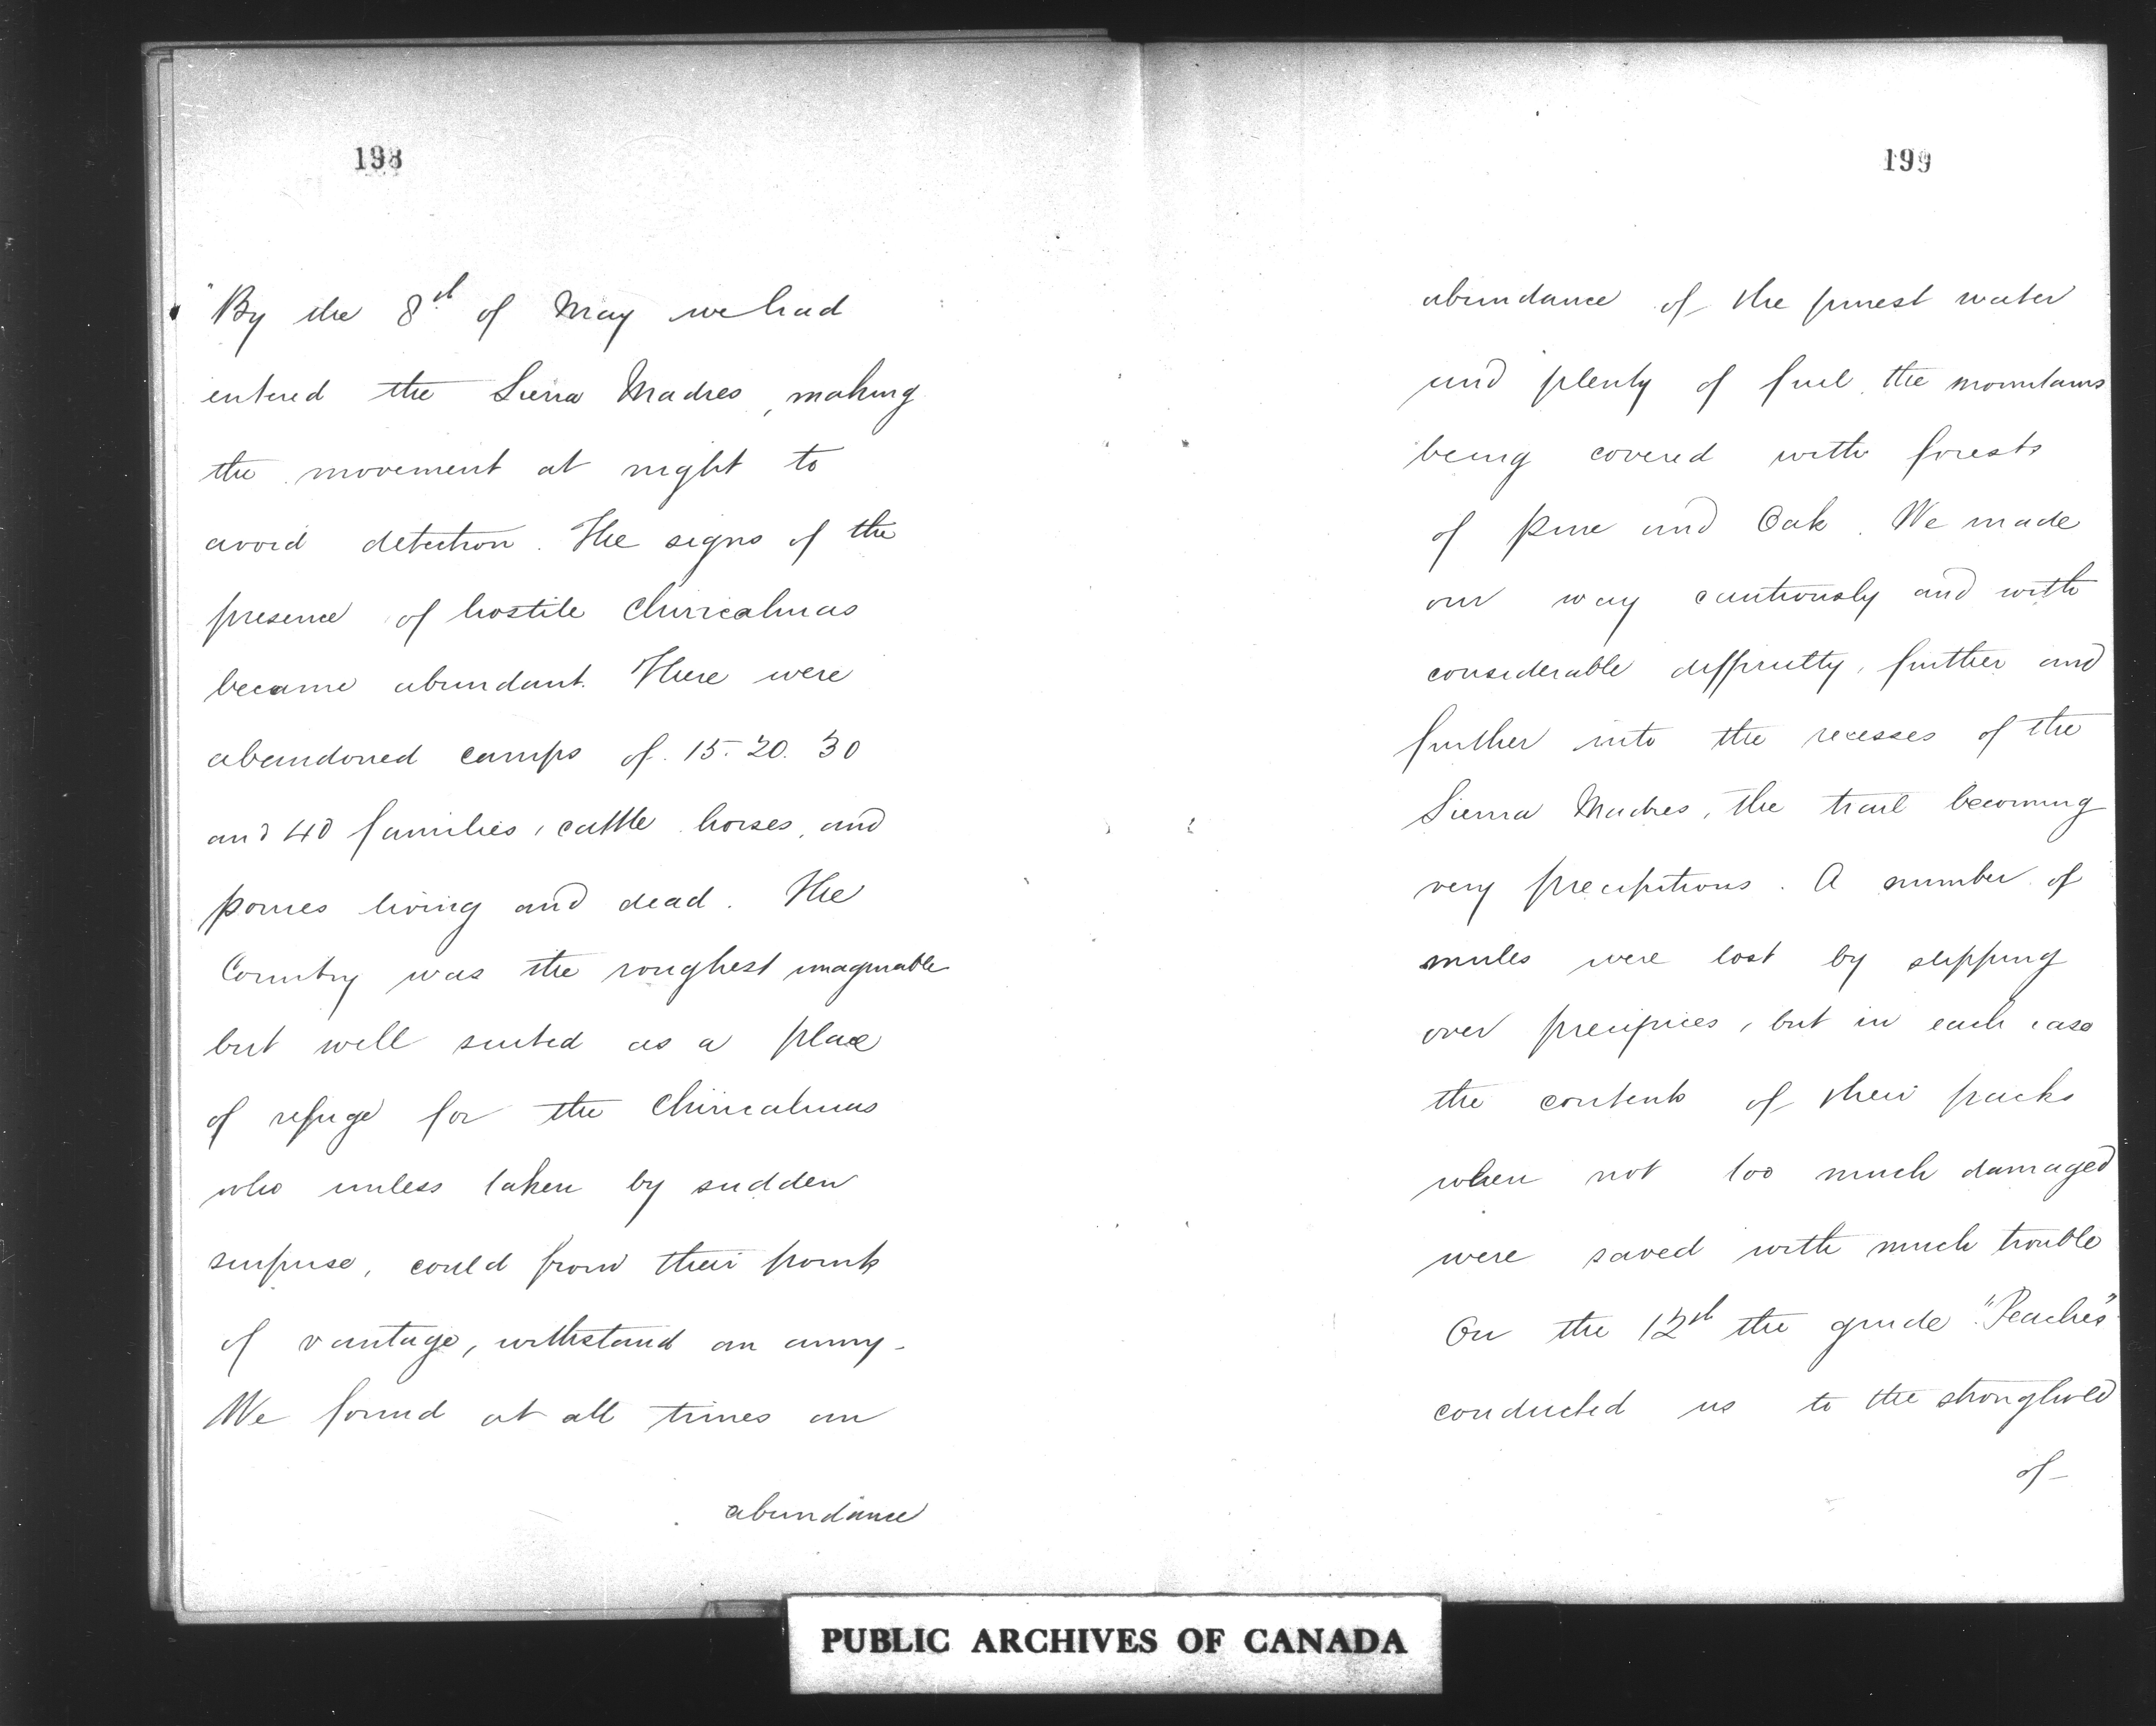 198
"By the 8th of May we had
entered the Sierra Madres, making
the movement at night to
avoid detection. The signs of the
presence of hostile Chiricahuas
became abundant. There were
abandoned camps of. 15. 20. 30
and 40 families, cattle horses, and
ponies living and dead. The
Country was the roughest imaginable
but well suited as a place
of refuge for the Chiricahuas
who unless taken by sudden
surprise, could from their points
of vantage, withstand an army-
We found at all times an
abundance
199
abundance of the purest water
and plenty of fuel, the mountains
being covered with forests
of pine and Oak. We made
our way cautiously and with
considerable difficulty, further and
further into the recesses of the
Sierra Madres, the trail becoming
very precipitious. A number of
mules were lost by slipping
over precipices, but in each case
the contents of their packs
when not too much damaged
were saved with much trouble
On the 12th the guide "Peaches"
conducted us to the stronghold
of-
PUBLIC ARCHIVES OF CANADA